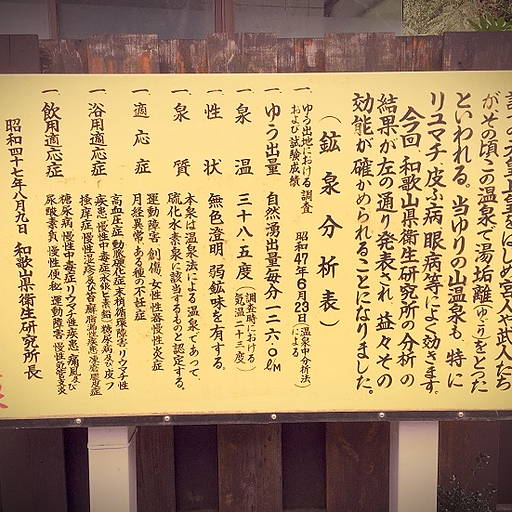 がその頃この温泉で湯垢離(ゆごり)をとった
といわれる。当ゆりの山温泉も、特に
リュマチ、皮ふ病、眼病等によく効きます。
今回、和歌山県衛生研究所の分析の
結果が左の通り発表され、益々その
効能が確かめられることになりました。
(鉱泉分析表)
一、ゆう出地における調査および試験成績 昭和47年6月23日(温泉中分析法)による
一、ゆう出量 自然湧出量毎分一二六・〇ℓM
一、泉温 三十八・五度(調査時における気温二十三度)
一、性状 無色澄明、弱鉱味を有する。
一、泉質 本泉は温泉法による温泉であって、
硫化水素泉に該当するものと認定する。
一、適応症 運動障害、創傷、女性性器慢性炎症
月経異常、ある種の不妊症
一、浴用適応症 高血圧症、動脈硬化症、末梢循環障害、リウマチ性
疾患、慢性中毒症、糖尿病及び皮フ
掻庠症、慢性湿疹及び苔癬
一、飲用適応症 糖尿病、慢性中毒症、リウマチ性疾患、痛風及び
尿酸素質、慢性便秘、運動障害、慢性気管支炎
昭和四十七年八月九日 和歌山県衛生研究所長